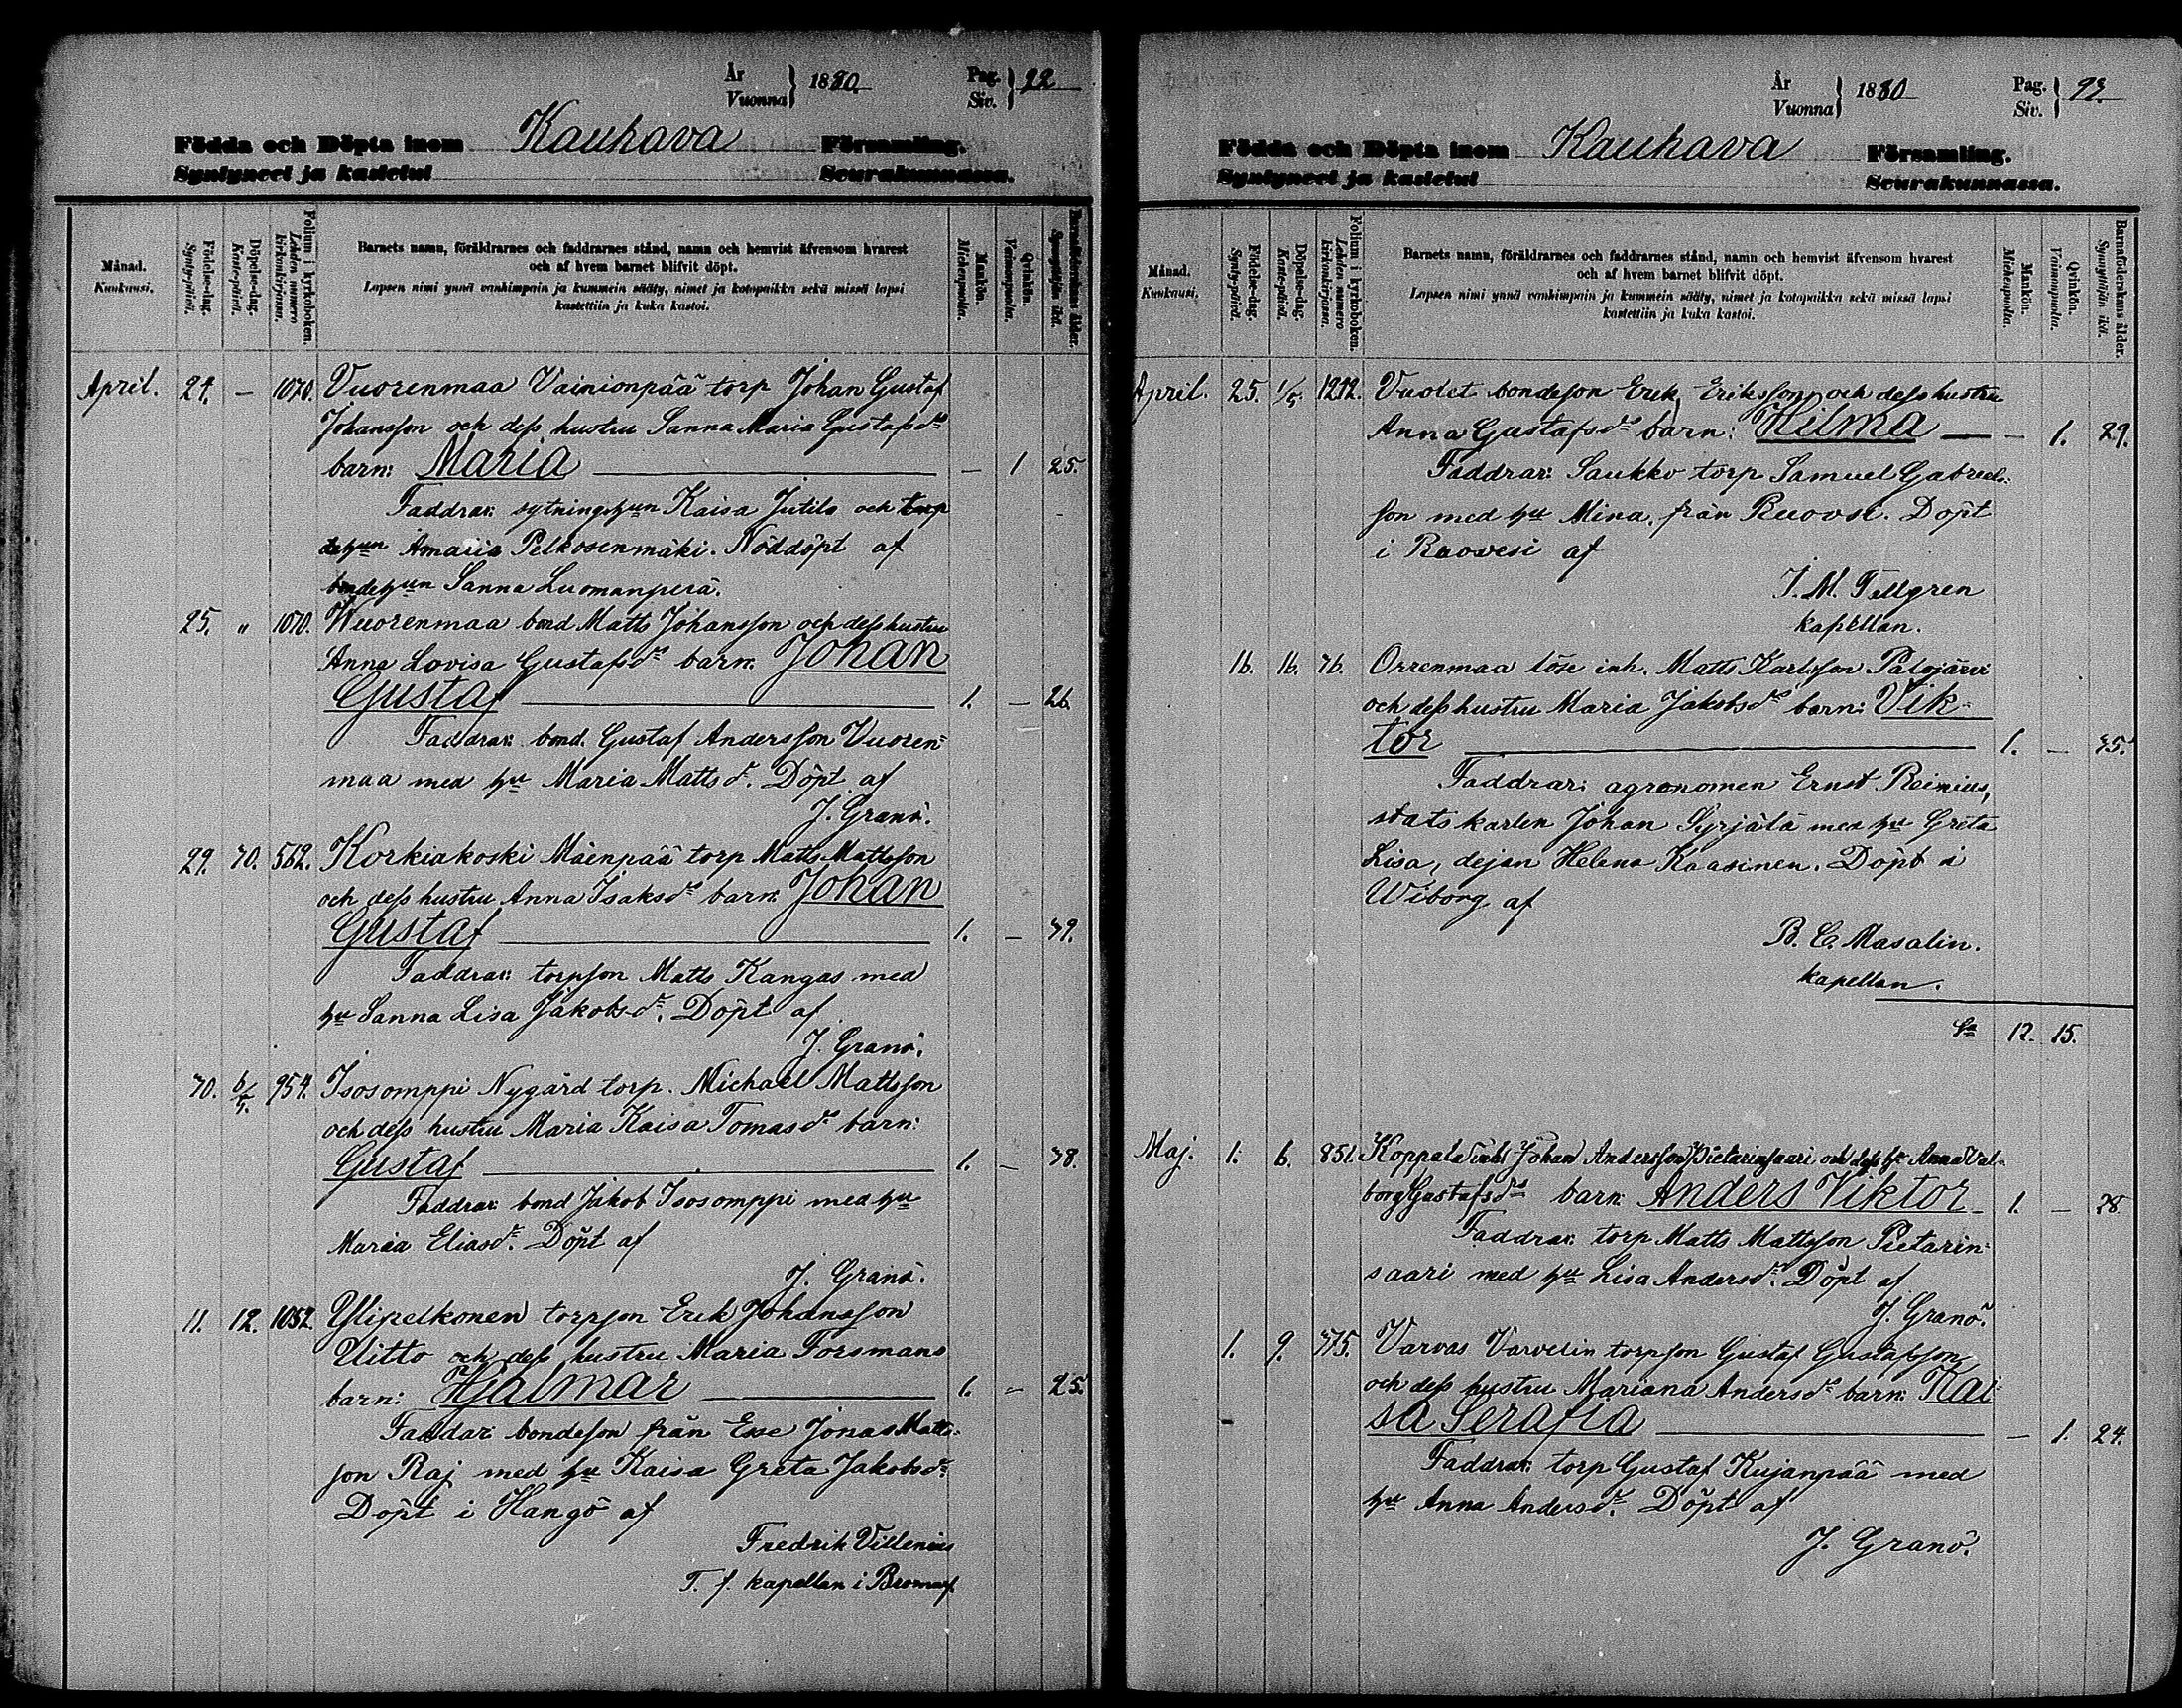 År
Vuonna
1880.
Pag.
Siv.
92
Födda och Döpta inom Kauhava Församling.
Syntyneet ja kastetut Seurakunnassa.
Månad.
Kuukausi.
Födelse-dag.
Synty-päivä.
Döpelse-dag.
Kaste-päivä.
Folium i kyrkoboken.
Lehden numero kirkonkirjassa.
Barnets namn, föräldrarnes och faddrarnes stånd, namn och hemvist äfvensom hvarest
och af hvem barnet blifvit döpt.
Lapsen nimi ynnä vanhimpain ja kummein sääty, nimet ja kotopaikka sekä missä lapsi
kastettiin ja kuka kastoi.
Mankön.
Miehenpuolia.
Qvinkön.
Vaimonpuolia.
Barnaföderskans ålder.
Synnyttäjän ikä.
April. 24. — 1070. Vuorenmaa Vainionpää torp Johan Gustaf
Johansson och dess hustru Sanna Maria Gustafsdr
barn: Maria — 1 25.
Faddrar: sytningshun Kaisa Jutila och torp
dehun Amaria Pelkosenmäki. Nöddöpt af
bondehun Sanna Luomanperä.
25. " 1070. Wuorenmaa bond Matts Johansson och dess hustru
Anna Lovisa Gustafsdr barn: Johan
Gustaf 1. — 26.
Faddrar: bond. Gustaf Andersson Vuoren-
maa med hu Maria Mattsdr. Döpt af
J. Granö.
29. 30. 562. Korkiakoski Mäenpää torp Matts Mattsson
och dess hustru Anna Isaksdr barn: Johan
Gustaf 1. — 39.
Faddrar: torpson Matts Kangas med
hu Sanna Lisa Jakobsdr. Döpt af
J. Granö.
30. 6/5. 954. Isosomppi Nygård torp. Michael Mattsson
och dess hustru Maria Kaisa Tomasdr barn:
Gustaf 1. — 38.
Faddrar: bond Jakob Isosomppi med hu
Maria Eliasdr. Döpt af
J. Granö.
11. 12. 1052. Ylipelkonen torpson Erik Johansson
Uitto och dess hustru Maria Forsmans
barn: Hjalmar 1. — 25.
Faddar: bondeson från Esse Jonas Matts-
son Raj med hu Kaisa Greta Jakobsdr
Döpt i Hangö af
Fredrik Villenius
T. f. kapellan i Bromarf.
År
Vuonna
1880
Pag.
Siv.
93.
Födda och Döpta inom Kauhava Församling.
Syntyneet ja kastetut Seurakunnassa.
Månad.
Kuukausi.
Födelse-dag.
Synty-päivä.
Döpelse-dag.
Kaste-päivä.
Folium i kyrkoboken.
Lehden numero kirkonkirjassa.
Barnets namn, föräldrarnes och faddrarnes stånd, namn och hemvist äfvensom hvarest
och af hvem barnet blifvit döpt.
Lapsen nimi ynnä vanhimpain ja kummein sääty, nimet ja kotopaikka sekä missä lapsi
kastettiin ja kuka kastoi.
Mankön.
Miehenpuolia.
Qvinkön.
Vaimonpuolia.
Barnaföderskans ålder.
Synnyttäjän ikä.
April. 25. 1/5 1212. Vuolet bondeson Erik Eriksson och dess hustru
Anna Gustafsdr barn: Hilma — 1. 29.
Faddrar: Saukko torp Samuel Gabriels-
son med hu Mina, från Ruovsi. Döpt
i Ruovesi af
J. M. Fellgren
kapellan.
16. 16. 36. Orrenmaa löse inh. Matts Karlsson Palojärvi
och dess hustru Maria Jakobsdr barn: Vik-
tor 1. — 35.
Faddrar: agronomen Ernst Reinius,
statskarlen Johan Syrjälä med hu Greta
Lisa, dejan Helena Kaasinen. Döpt i
Wiborg af
B. C. Masalin.
kapellan.
Sa 12. 15.
Maj. 1. 6. 851. Koppala inh. Johan Andersson Pietarinsaari och dess hu Anna Val-
borg Gustafsdr barn: Anders Viktor 1. — 28
Faddrar: torp Matts Mattsson Pietarin-
saari med hu Lisa Andersdr. Döpt af
J. Granö.
1. 9. 375. Varvas Varvelin torpson Gustaf Gustafsson
och dess hustru Mariana Andersdr barn: Kai-
sa Serafia — 1. 24.
Faddrar: torp Gustaf Kujanpää med
hu Anna Andersdr. Döpt af
J. Granö.